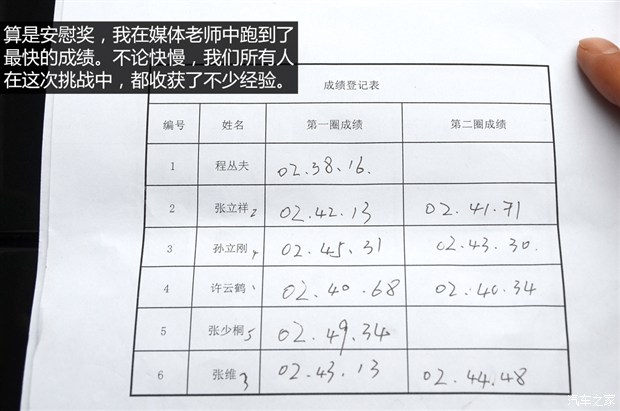 算是安慰奖，我在媒体老师中跑到了
最快的成绩。不论快慢，我们所有人
在这次挑战中，都收获了不少经验。
成绩登记表
编号 姓名 第一圈成绩 第二圈成绩
1 程丛夫 02.38.16.
2 张立祥 2 02.42.13 02.41.71
3 孙立刚 02.45.31 02.43.30.
4 许云鹤 02.40.68 02.40.34
5 张少桐 5 02.49.34
6 张维 3 02.43.13 02.44.48
汽车之家